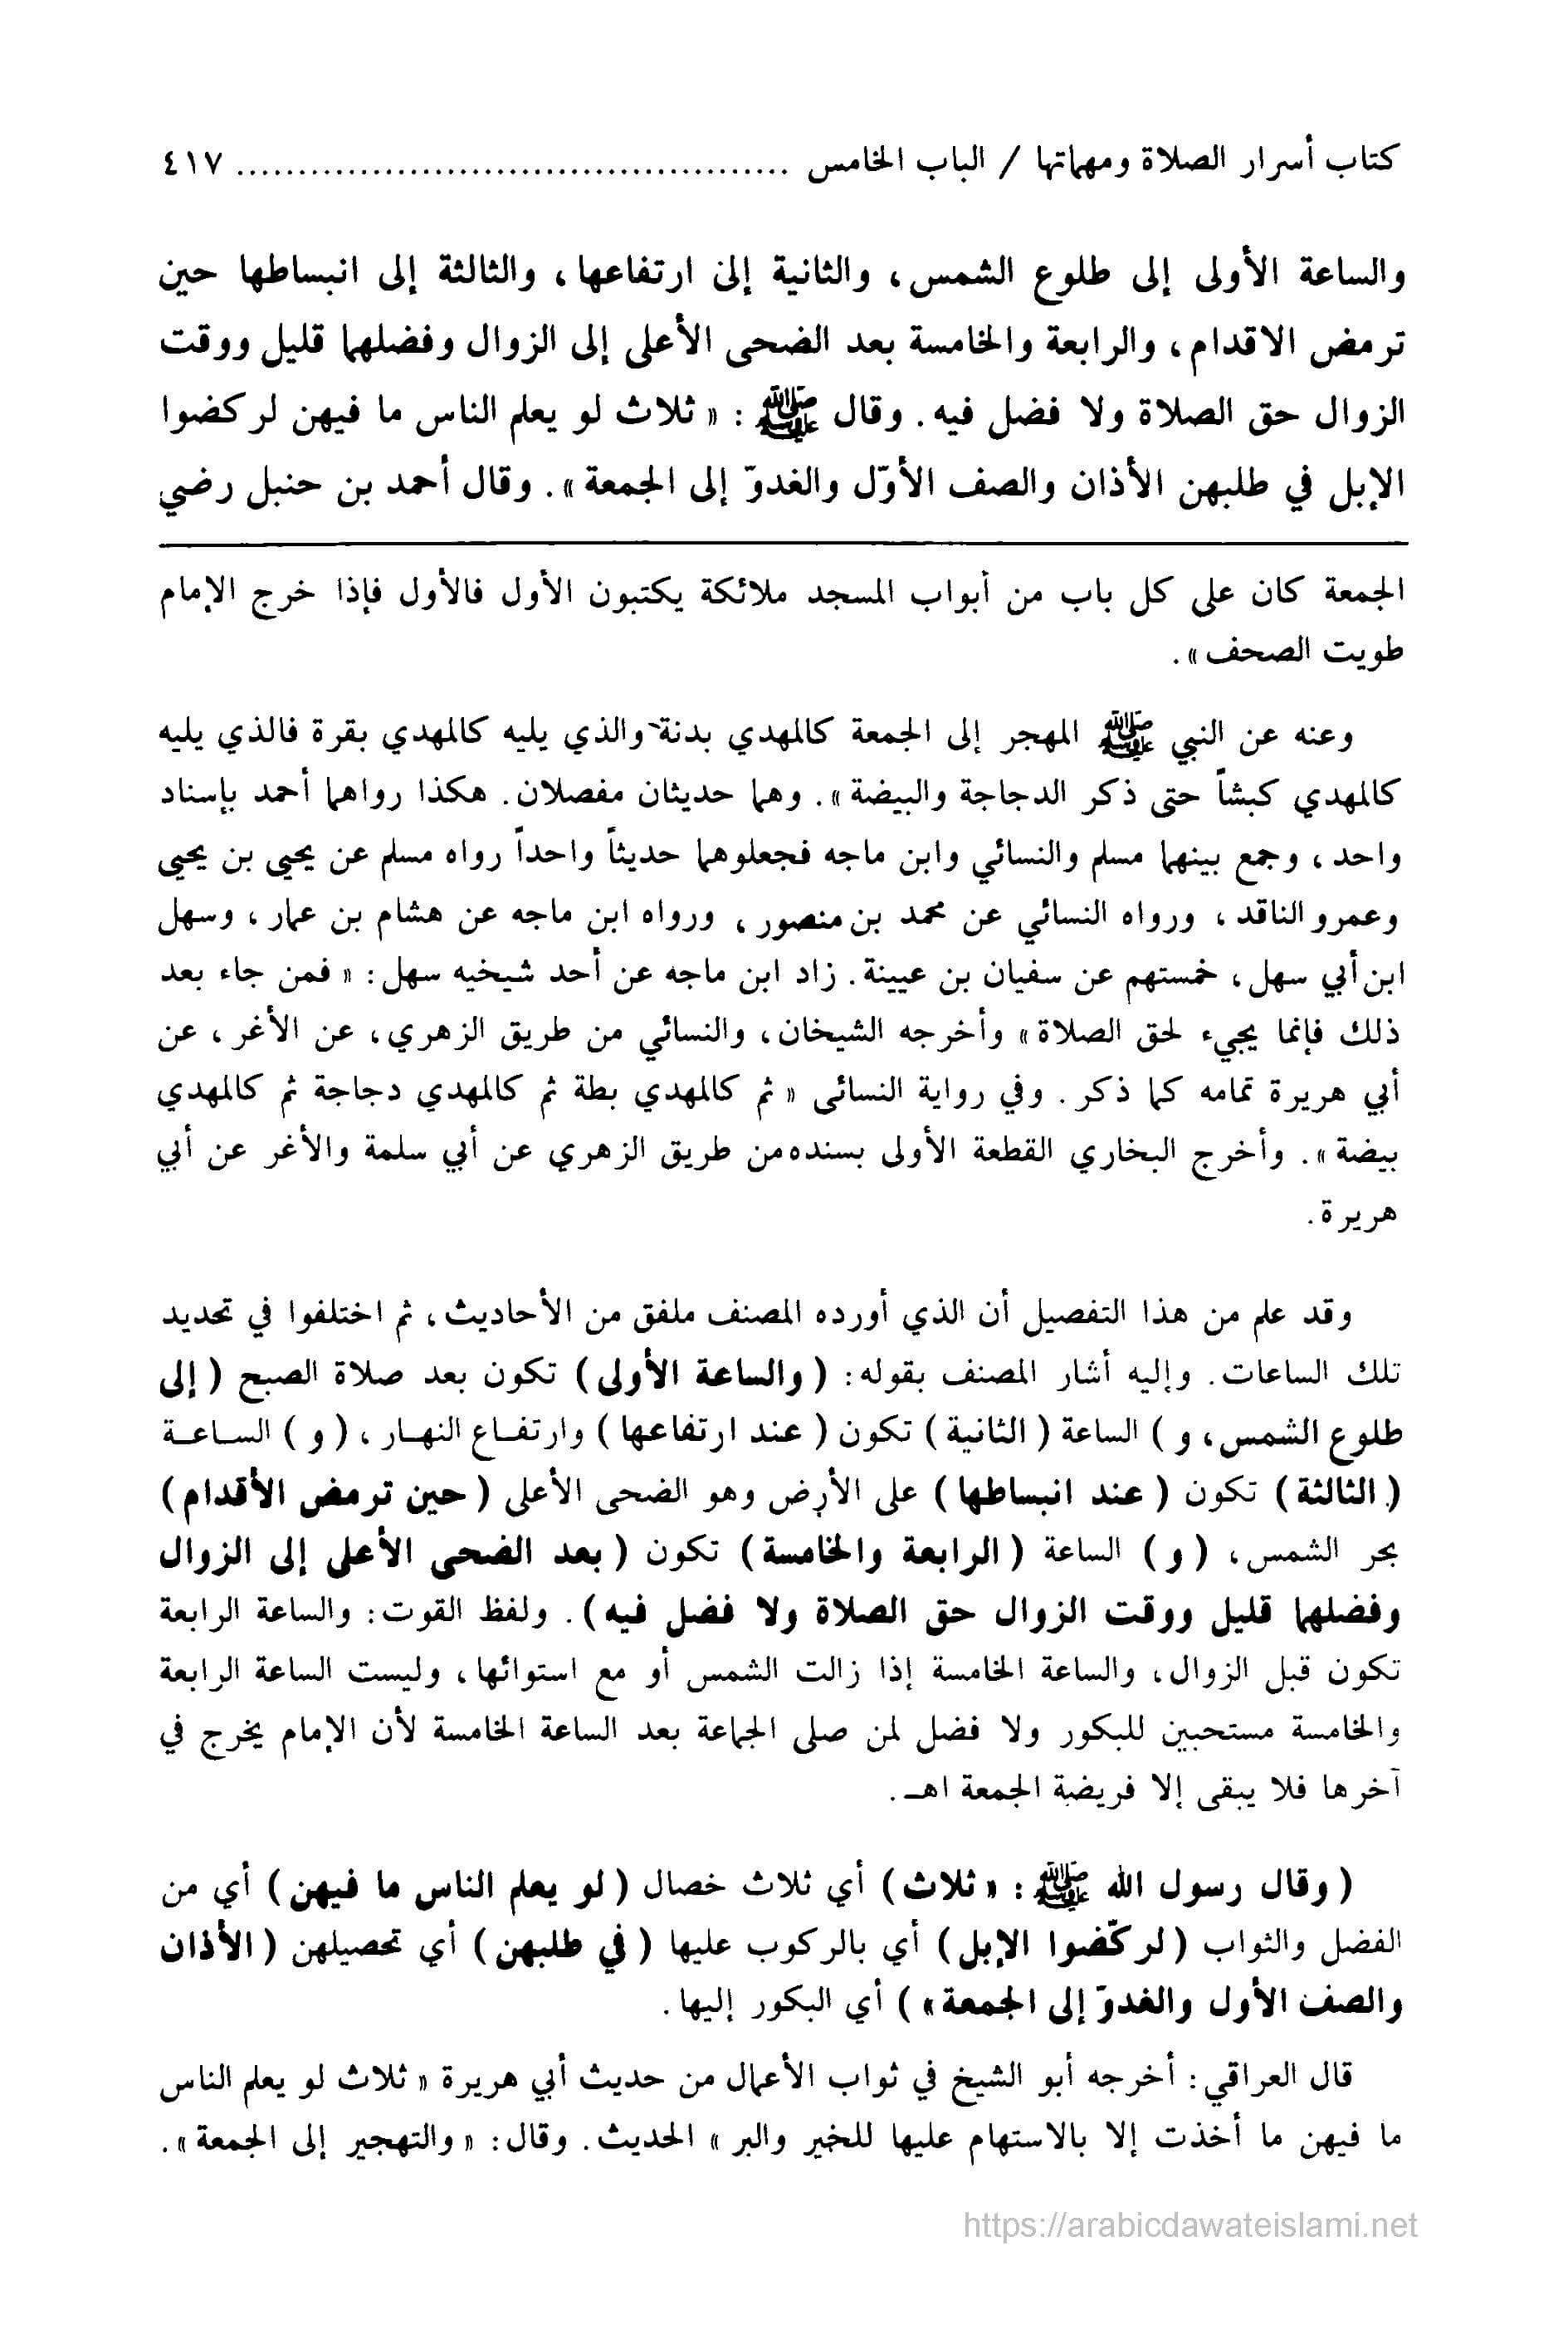 كتاب أسرار الصلاة ومهماتها / الباب الخامس .............................................. ٤١٧
والساعة الأولى إلى طلوع الشمس، والثانية إلى ارتفاعها، والثالثة إلى انبساطها حين
ترمض الاقدام، والرابعة والخامسة بعد الضحى الأعلى إلى الزوال وفضلهما قليل ووقت
الزوال حق الصلاة ولا فضل فيه. وقال ﷺ : « ثلاث لو يعلم الناس ما فيهن لركضوا
الإبل في طلبهن الأذان والصف الأوّل والغدوّ إلى الجمعة ». وقال أحمد بن حنبل رضي
الجمعة كان على كل باب من أبواب المسجد ملائكة يكتبون الأول فالأول فإذا خرج الإمام
طويت الصحف ».
وعنه عن النبي ﷺ المهجر إلى الجمعة كالمهدي بدنة والذي يليه كالمهدي بقرة فالذي يليه
كالمهدي كبشاً حتى ذكر الدجاجة والبيضة ». وهما حديثان مفصلان. هكذا رواهما أحمد بإسناد
واحد ، وجمع بينهما مسلم والنسائي وابن ماجه فجعلوهما حديثاً واحداً رواه مسلم عن يحيى بن يحيى
وعمرو الناقد ، ورواه النسائي عن محمد بن منصور ، ورواه ابن ماجه عن هشام بن عمار ، وسهل
ابن أبي سهل، خمستهم عن سفيان بن عيينة. زاد ابن ماجه عن أحد شيخيه سهل: « فمن جاء بعد
ذلك فإنما يجيء لحق الصلاة » وأخرجه الشيخان، والنسائي من طريق الزهري، عن الأغر ، عن
أبي هريرة تمامه كما ذكر . وفي رواية النسائى « ثم كالمهدي بطة ثم كالمهدي دجاجة ثم كالمهدي
بيضة ». وأخرج البخاري القطعة الأولى بسنده من طريق الزهري عن أبي سلمة والأغر عن أبي
هريرة.
وقد علم من هذا التفصيل أن الذي أورده المصنف ملفق من الأحاديث، ثم اختلفوا في تحديد
تلك الساعات. وإليه أشار المصنف بقوله: ( والساعة الأولى ) تكون بعد صلاة الصبح ( إلى
طلوع الشمس، و ) الساعة ( الثانية ) تكون ( عند ارتفاعها ) وارتفـاع النهـار ، ( و ) السـاعـة
( الثالثة ) تكون ( عند انبساطها ) على الأرض وهو الضحى الأعلى ( حين ترمض الأقدام )
بحر الشمس، ( و ) الساعة ( الرابعة والخامسة ) تكون ( بعد الضحى الأعلى إلى الزوال
وفضلهما قليل ووقت الزوال حق الصلاة ولا فضل فيه ). ولفظ القوت: والساعة الرابعة
تكون قبل الزوال، والساعة الخامسة إذا زالت الشمس أو مع استوائها، وليست الساعة الرابعة
والخامسة مستحبين للبكور ولا فضل لمن صلى الجماعة بعد الساعة الخامسة لأن الإمام يخرج في
آخرها فلا يبقى إلا فريضة الجمعة اهـ .
( وقال رسول الله ﷺ : « ثلاث ) أي ثلاث خصال ( لو يعلم الناس ما فيهن ) أي من
الفضل والثواب ( لركّضوا الإبل ) أي بالركوب عليها ( في طلبهن ) أي تحصيلهن ( الأذان
والصف الأول والغدوّ إلى الجمعة » ) أي البكور إليها .
قال العراقي: أخرجه أبو الشيخ في ثواب الأعمال من حديث أبي هريرة « ثلاث لو يعلم الناس
ما فيهن ما أخذت إلا بالاستهام عليها للخير والبر » الحديث. وقال: « والتهجير إلى الجمعة ».
https://arabicdawateislami.net